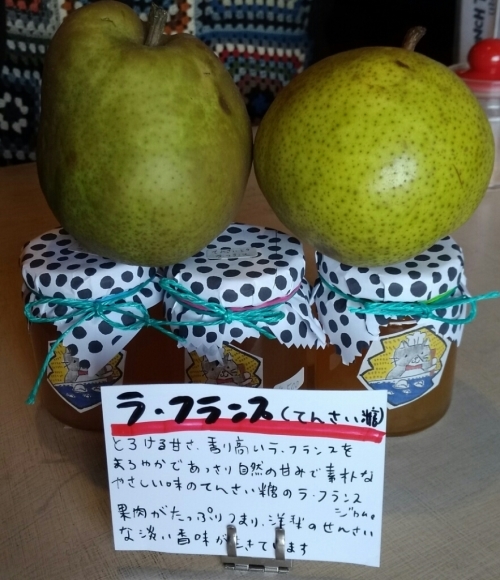 ラ・フランス(てんさい糖)
とろける甘さ、香り高いラ・フランスを
まろやかであっさり自然の甘みで素朴な
やさしい味のてんさい糖のラ・フランス
ジャム。
果肉がたっぷりつまり、洋梨のせんさい
な淡い香味が生きてます